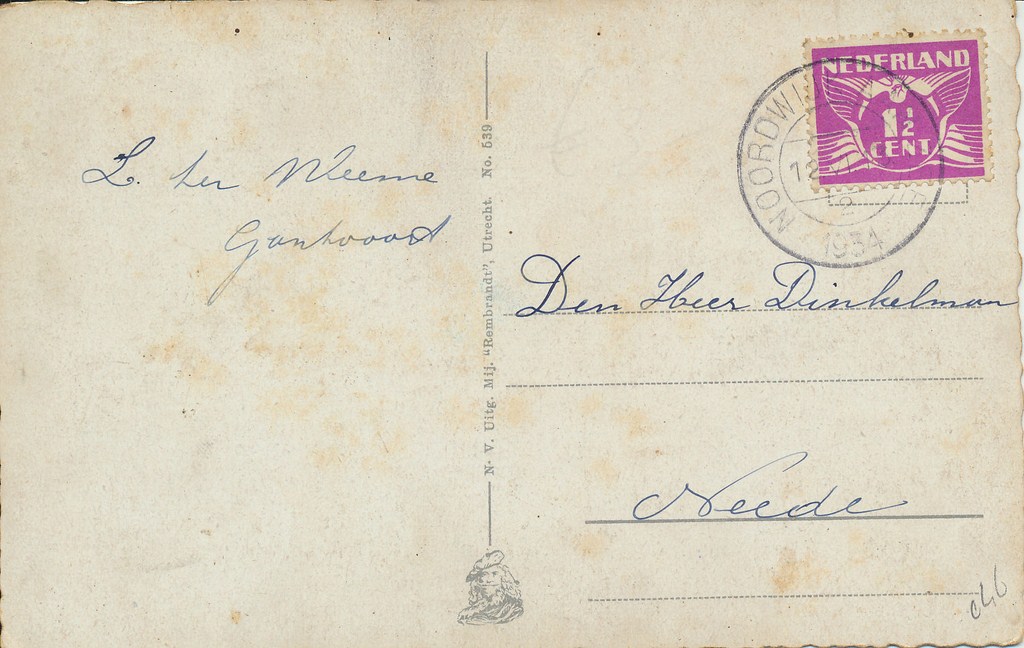 L. ter Weeme
Gantvoort
N. V. Uitg. Mij. "Rembrandt", Utrecht. No. 539
NEDERLAND
1 1/2
CENT
NOORDWIJK
12
2
1934
Den Heer Dinkelman
Neede